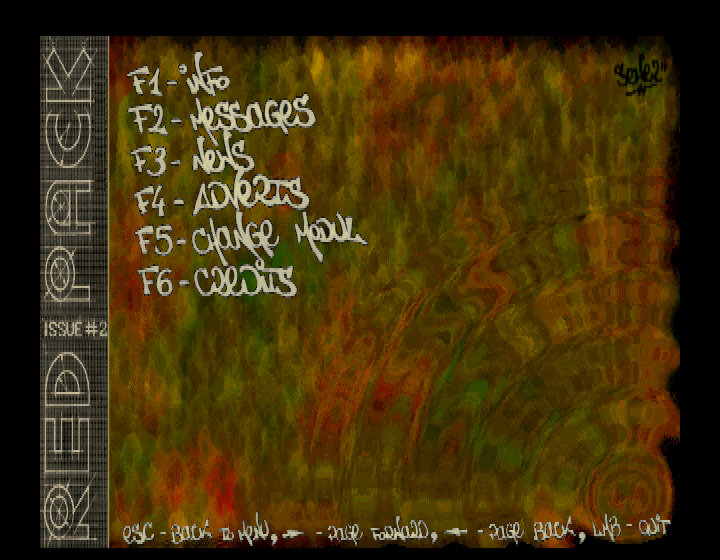 F1 - info
F2 - MESSAGES
F3 - NEWS
F4 - ADVERTS
F5 - CHANGE MODUL
F6 - CREDITS
RED PACK
ISSUE #2
ESC - BACK TO MENU, → - PAGE FORWARD, ← - PAGE BACK, LMB - OUT